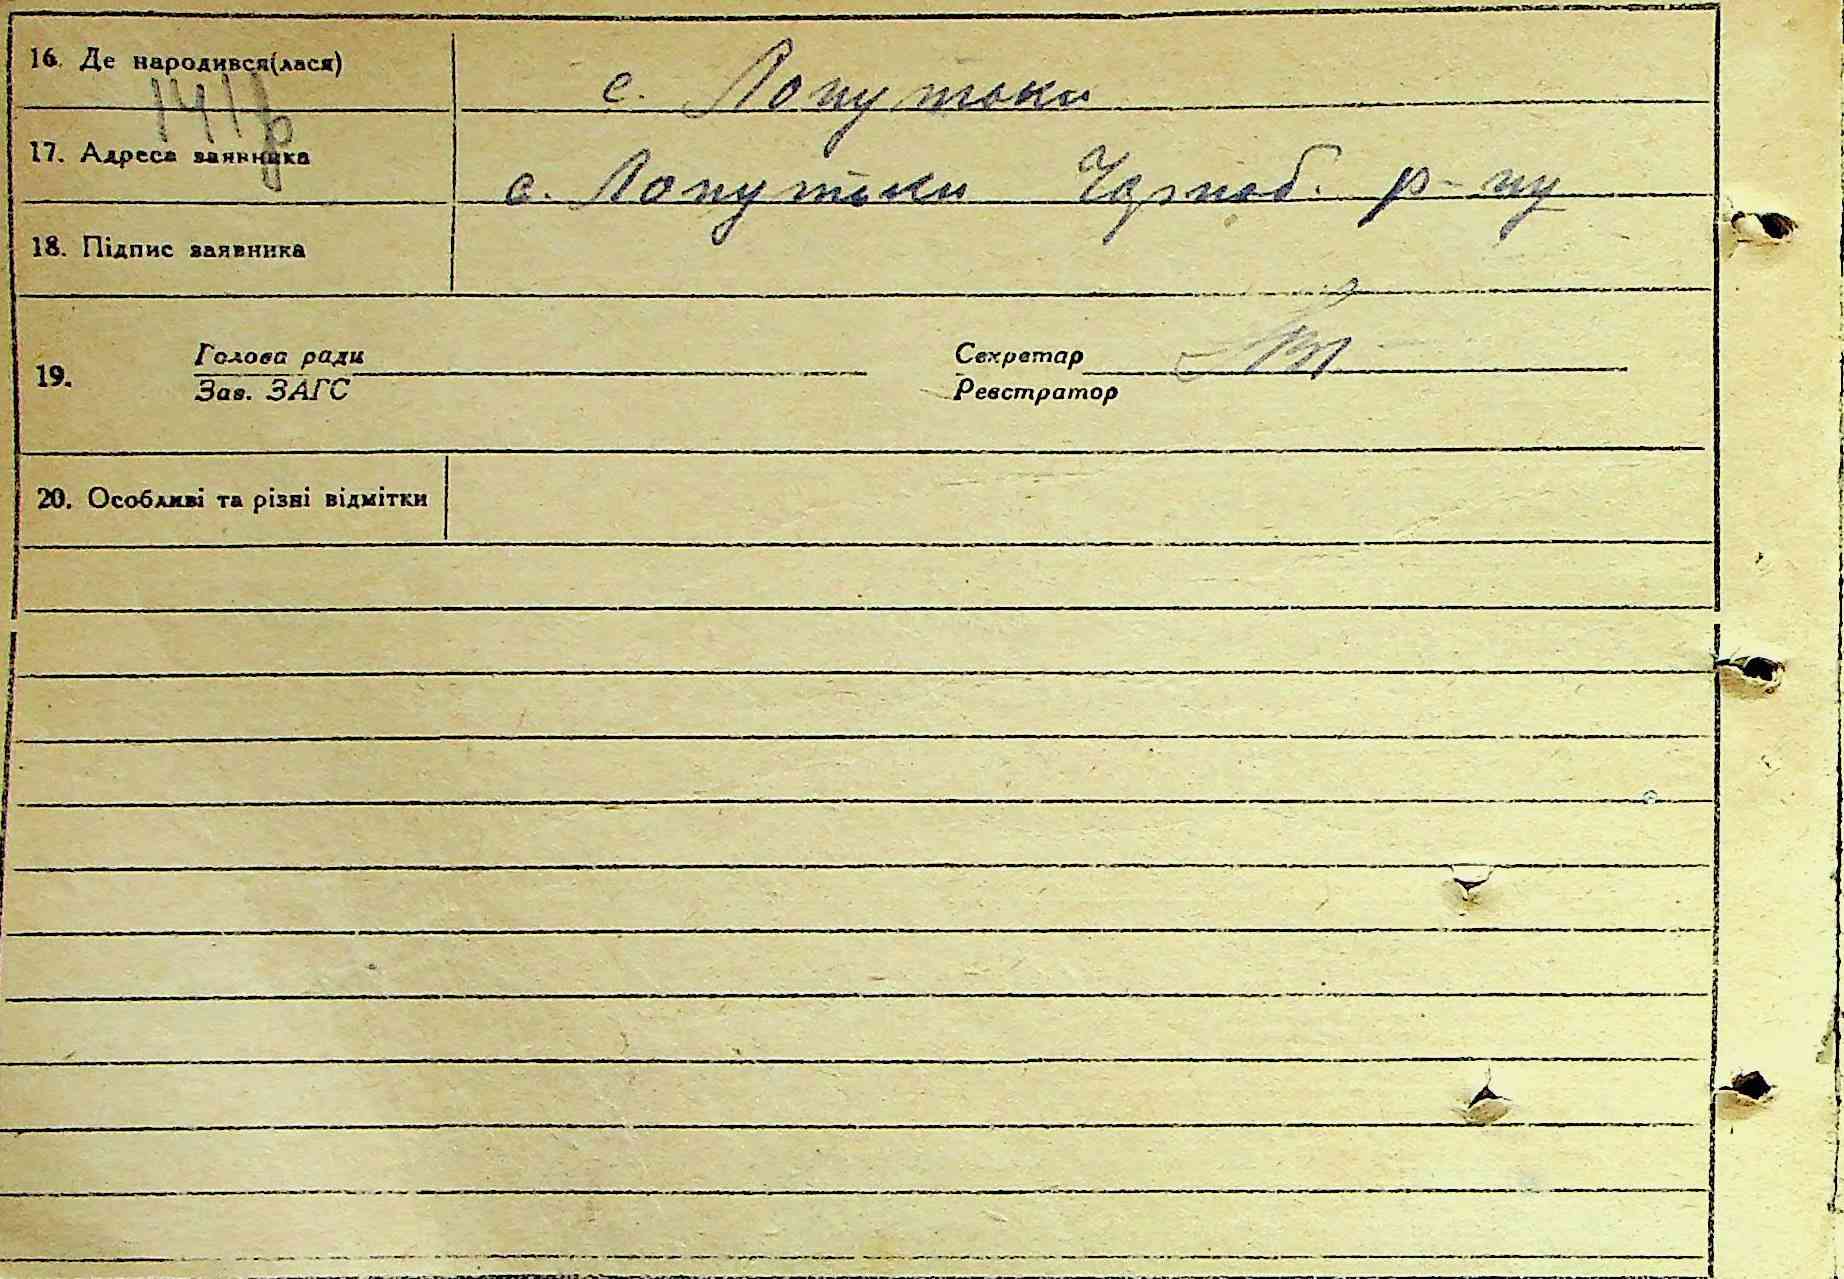 16. Де народився(лася)
с. Лопутьки
141 р
17. Адреса заявника
с. Лопутьки Чорноб. р-ну
18. Підпис заявника
19. Голова ради
Зав. ЗАГС
Секретар
Реєстратор
20. Особливі та різні відмітки